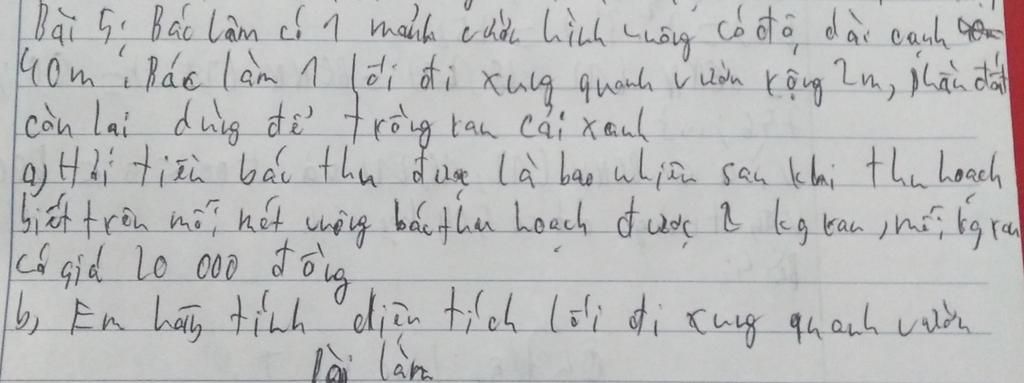 Bài 5: Bác Lâm có 1 mảnh vườn hình vuông có độ dài cạnh
40m. Bác làm 1 lối đi xung quanh vườn rộng 2m, phần đất
còn lại dùng để trồng rau cải xanh
a) Hỏi tiền bác thu được là bao nhiêu sau khi thu hoạch
biết trên mỗi mét vuông bác thu hoạch được 2 kg rau, mỗi kg rau
có giá 20 000 đồng
b, Em hãy tính diện tích lối đi xung quanh vườn
Bài làm